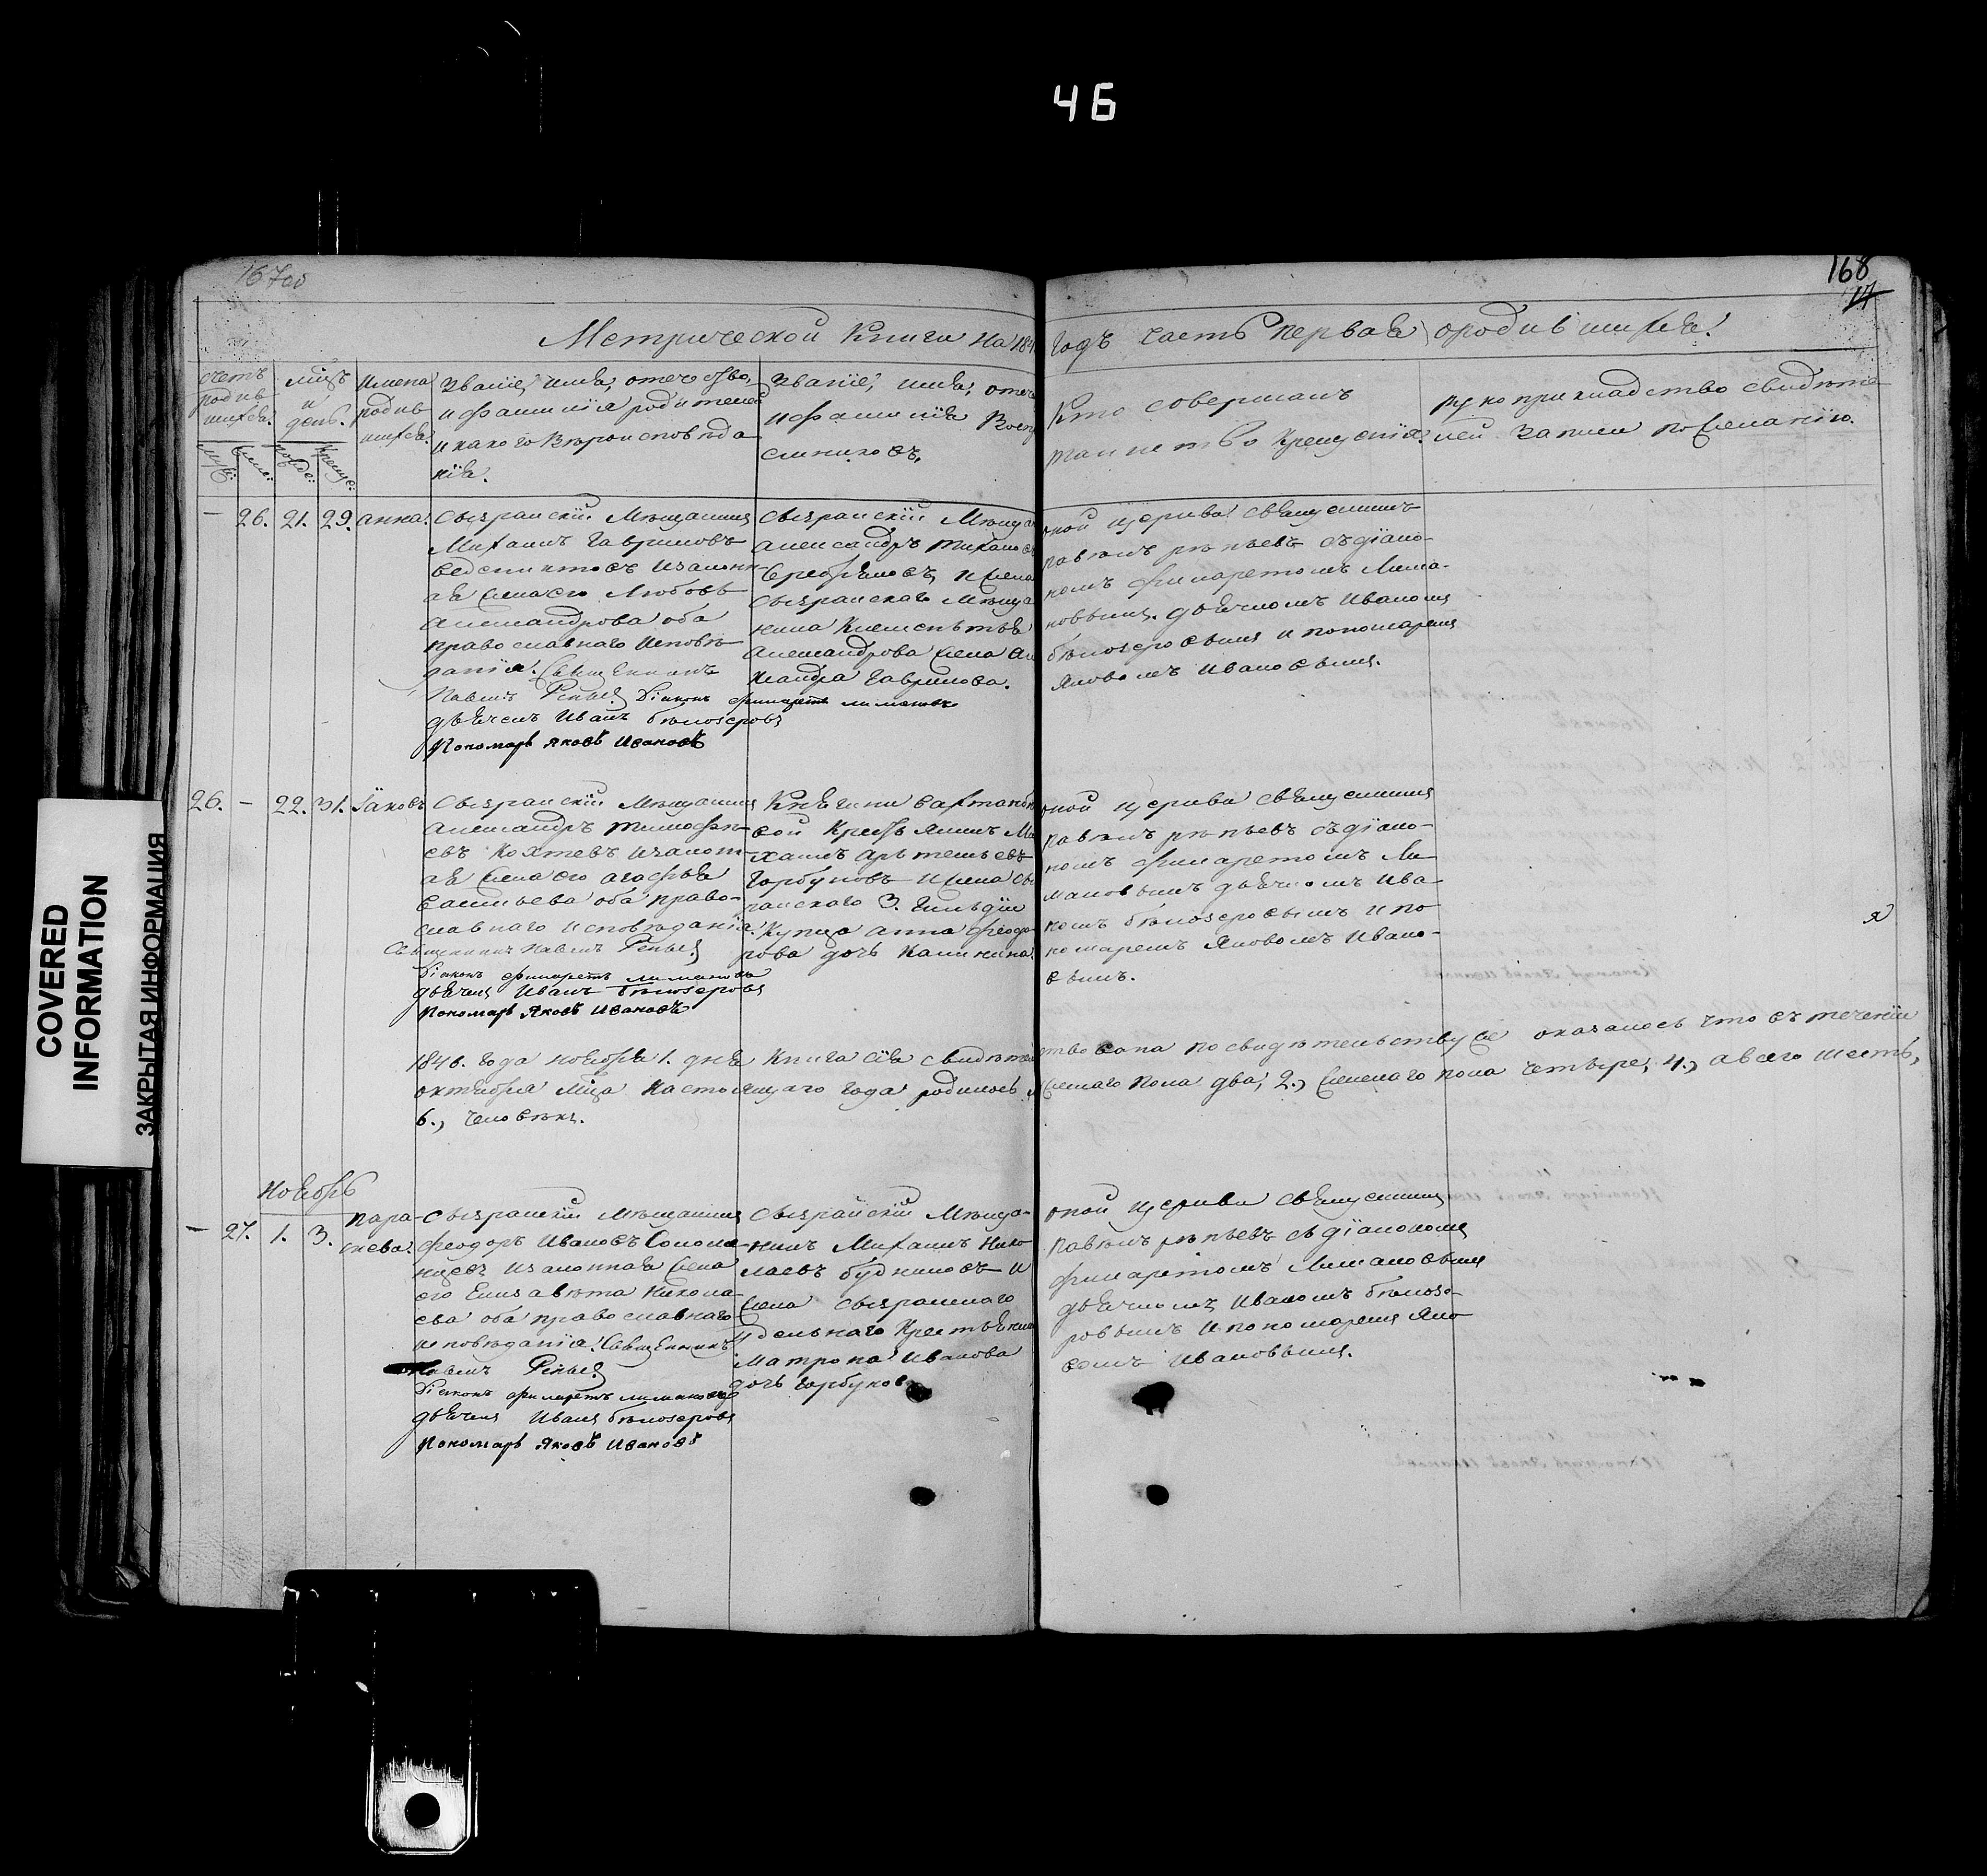 46
167 об
168
17
Метрической Книги на 184
годъ часть первая о родившихся.
счетъ родив шихся.
муж:
жен:
мцъ и день.
рожде:
креще:
имена родив шихся.
Званіе, имя, отечество,
и фамилія родителей
и какого вероисповѣда
нія.
Званіе, имя, отече
и фамилія Воспр
емниковъ.
Кто совершалъ
таинство крещенія.
рукоприкладство свидѣте
лей записи по желанію.
— 26. 21. 29. анна.
Сызранскій Мѣщанинъ
Михаилъ Гавриловъ
изаконн
ая жена его Любовь
Александрова оба
православнаго исповѣ
данія. Священникъ
Павелъ Репьев Діаконъ Филаретъ Лимановъ
дьячекъ Иванъ бѣлозеровъ
Пономарь Яковъ Ивановъ
Сызранскій Мѣща
Александръ
Серебряковъ, и жена
Сызранскаго Мѣща
нина Клементья
Александрова жена Але
ксандра Гаврилова.
оной церкви священникъ
Павелъ рѣпьевъ съ діако-
номъ Филаретомъ Лима-
новымъ. дьячкомъ Иваномъ
бѣлозеровымъ и пономаремъ
Яковомъ Ивановымъ.
26. — 22. 31. Іаковъ
Сызранскій Мѣщанинъ
Александръ Тимофѣ-
евъ Кохтевъ изаконн-
ая жена его агафья
Васильева оба право-
славнаго исповѣданія.
Священникъ Павелъ Репьев
Діаконъ Филаретъ Лимановъ
дьячекъ Иванъ бѣлозеровъ
Пономарь Яковъ Ивановъ
Княгини
вой Крестьянинъ Ми
хаилъ Артемьевъ
Горбуновъ и жена Сы
ранскаго 3. Гильдіи
Купца анна феодо-
рова дочь Калинина.
оной церкви священникъ
Павелъ рѣпьевъ съ діако-
номъ Филаретомъ Ли
мановымъ дьячкомъ Ива-
номъ бѣлозеровымъ и по
номаремъ Яковомъ Ивано-
вымъ.
1846. года ноября 1. дня Книга сія свидѣтельствована по свидѣтельству ея оказалось что въ теченіи
октября мца настоящаго года родилось мужескаго пола два, 2., женскаго пола четыре, 4., а всего шесть,
6., человѣкъ.
ноябрь
— 27. 1. 3. Пара-
скева.
Сызранскій мѣщанинъ
феодоръ Ивановъ Солома
нцевъ изаконная жена
его Елизавета Никола
ева оба православнаго
исповѣданія. Священникъ
Павелъ Репьев
Діаконъ Филаретъ Лимановъ
дьячекъ Иванъ бѣлозеровъ
Пономарь Яковъ Ивановъ
Сызранскій Мѣща-
нинъ Михаилъ Нико
лаевъ будниковъ и
жена сызранскаго
удельнаго Крестьянина
Матрона Иванова
дочь Горбунова
оной церкви священникъ
Павелъ рѣпьевъ съ діакономъ
Филаретомъ Лимановымъ
дьячкомъ Иваномъ бѣлозе-
ровымъ и пономаремъ Яко
вомъ Ивановымъ.
COVERED
INFORMATION
ЗАКРЫТАЯ ИНФОРМАЦИЯ